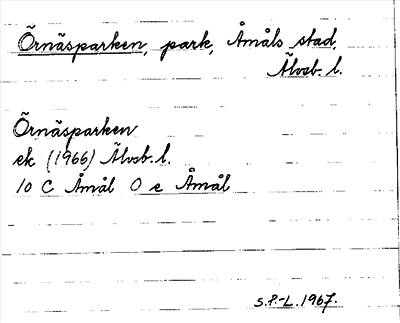 Örnäsparken, park, Åmåls stad,
Älvsb. l.
Örnäsparken
ek (1966) Älvsb. l.
10 C Åmål O e Åmål
S.P.-L. 1967.